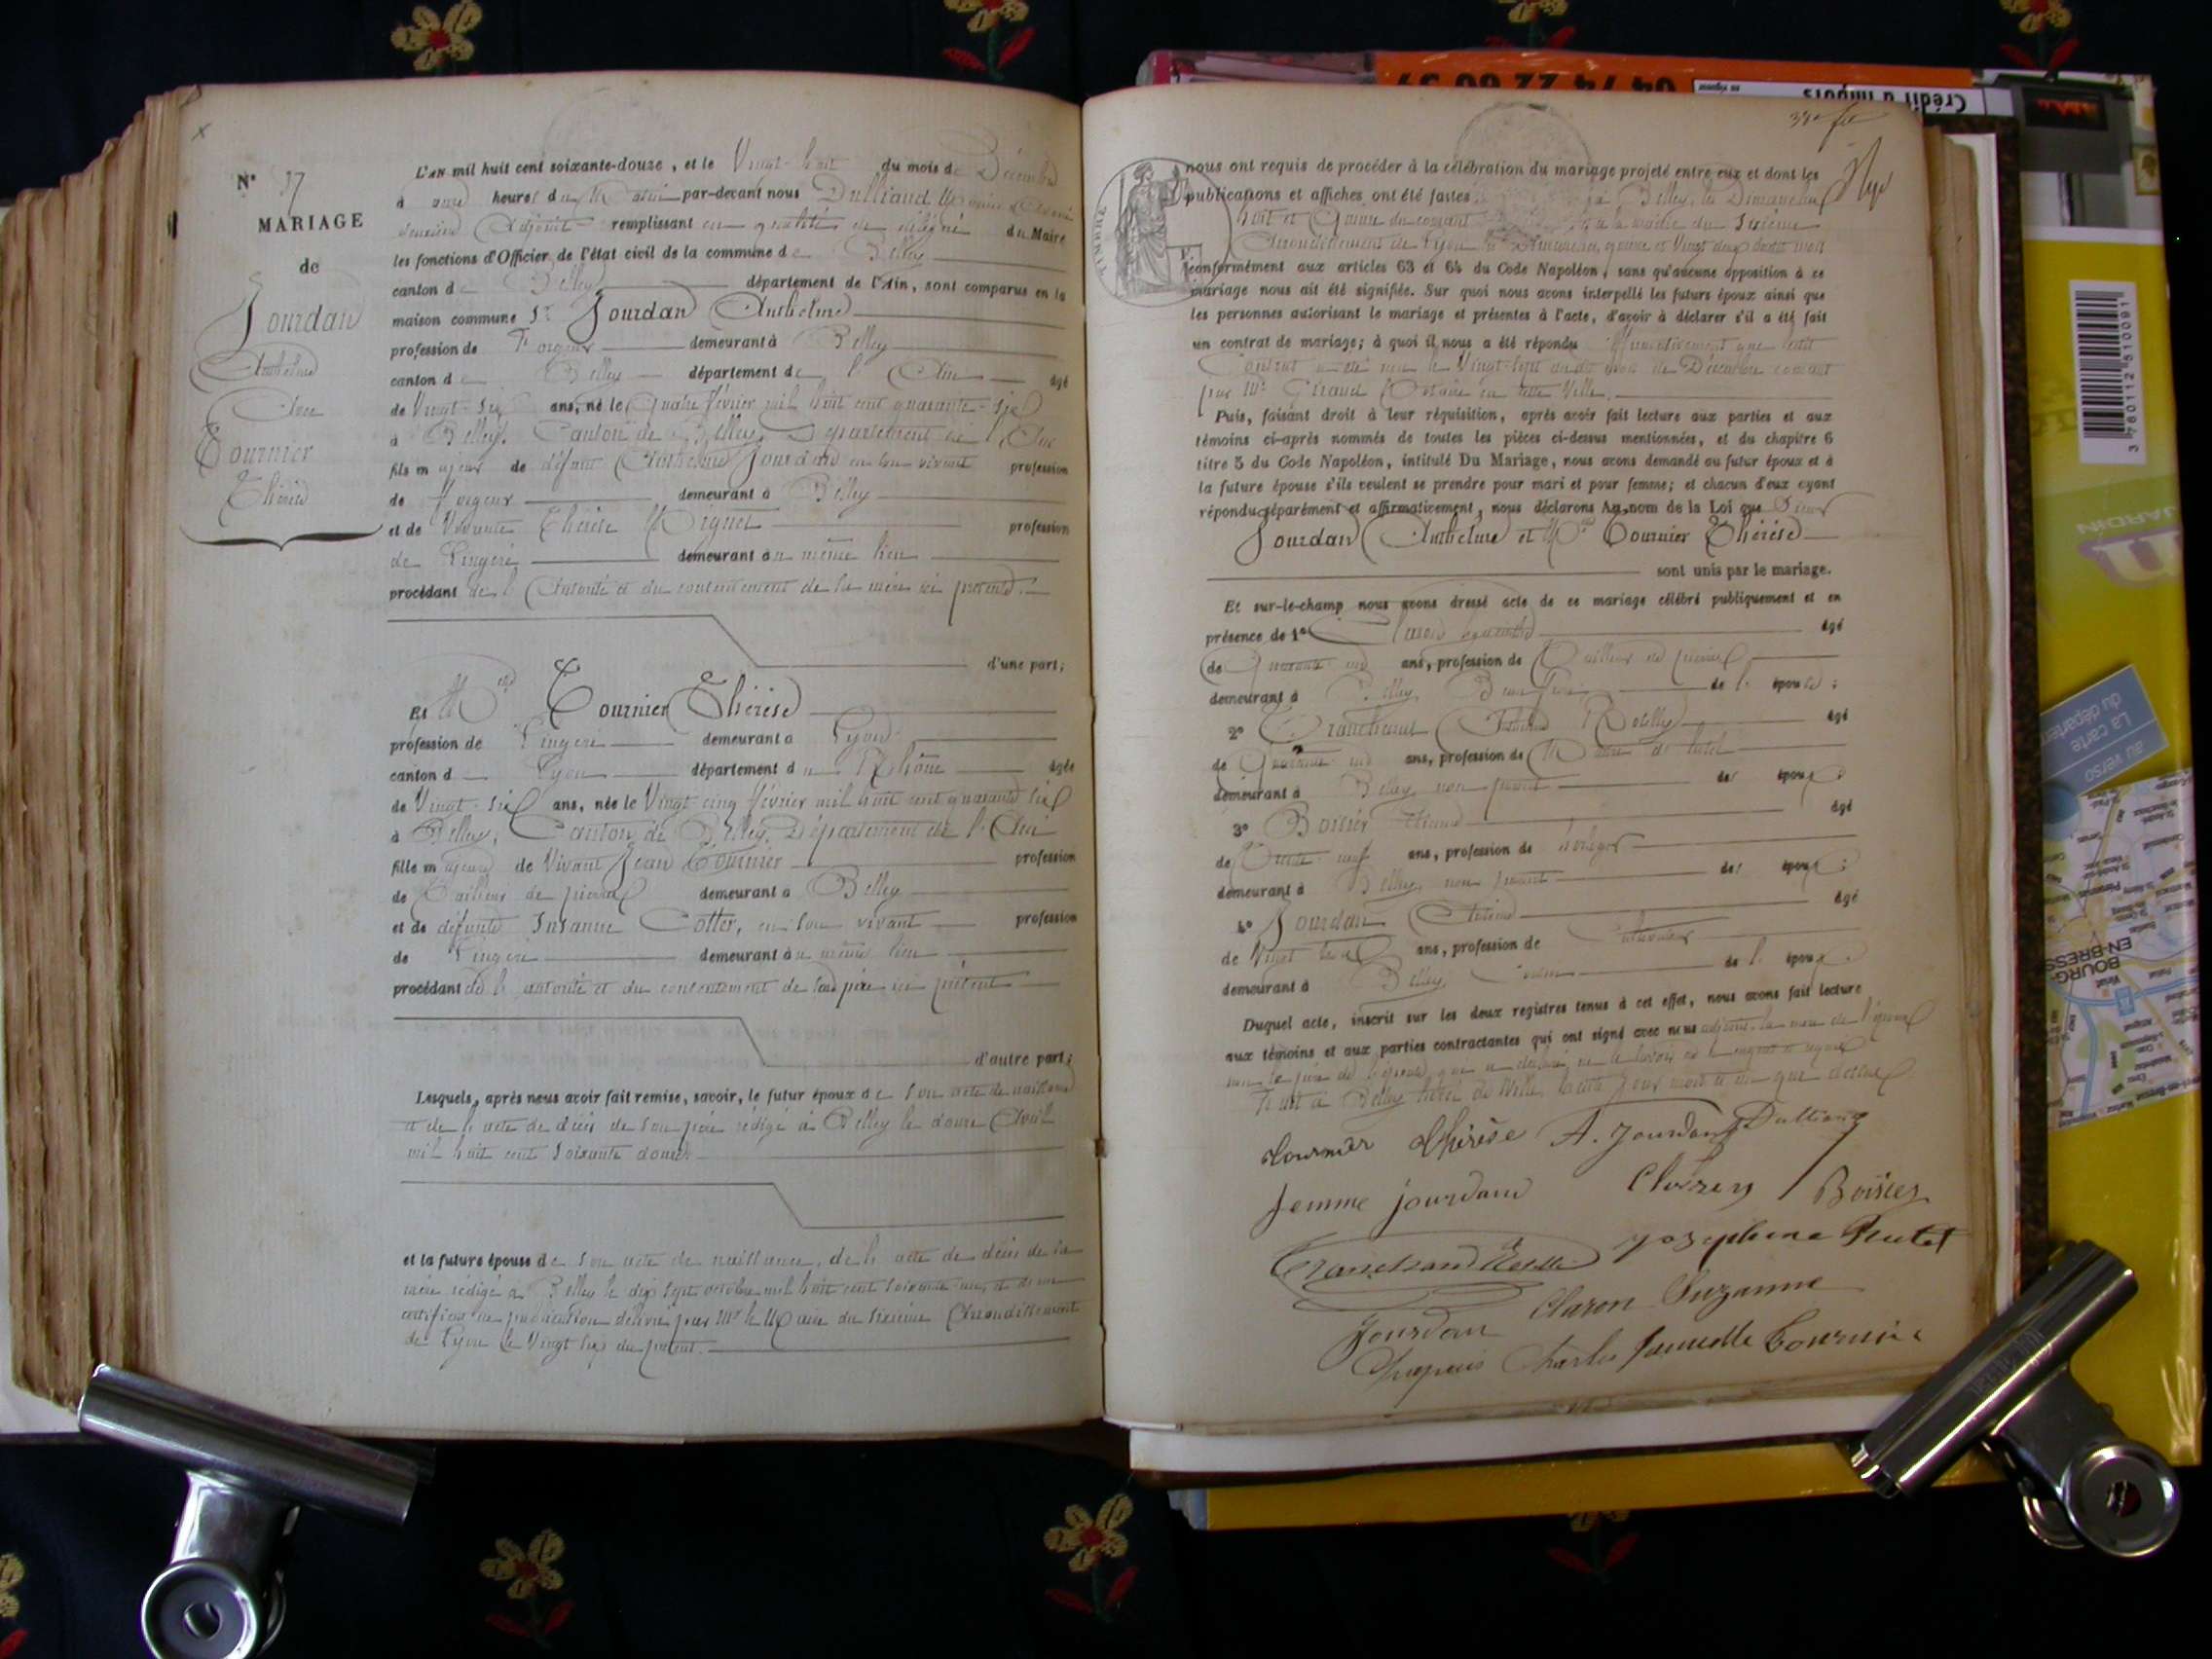 N° 37
MARIAGE
de
Jourdan
Anthelme
Avec
Tournier
Thérèse
L'AN mil huit cent soixante-douze, et le Vingt-huit du mois de Décembre
à onze heures du Matin par-devant nous Dulliand
Adjoint remplissant en qualité de délégué du Maire
les fonctions d'Officier de l'état civil de la commune de Belley
canton de Belley département de l'Ain, sont comparus en la
maison commune Sr Jourdan Anthelme
profession de Forgeur demeurant à Belley
canton de Belley département de l'Ain âgé
de Vingt-six ans, né le quatre février mil huit cent quarante-six
à Belley, Canton de Belley, Département de l'Ain
fils majeur de défunt Anthelme Jourdan en son vivant profession
de forgeur demeurant à Belley
et de Vivante Thérèse Miguet profession
de Lingère demeurant au même lieu
procédant de l'Autorité et du consentement de sa mère ici présente.
d'une part;
Et Melle Tournier Thérèse
profession de Lingère demeurant à Lyon
canton de Lyon département du Rhône âgée
de Vingt-six ans, née le Vingt-cinq février mil huit cent quarante six
à Belley, Canton de Belley, Département de l'Ain
fille majeure de Vivant Jean Tournier profession
de Tailleur de pierres demeurant à Belley
et de défunte Susanne Cotter, en son vivant profession
de Lingère demeurant au même lieu
procédant de l'autorité et du consentement de son père ici présent
d'autre part;
Lesquels, après nous avoir fait remise, savoir, le futur époux de son acte de naissance
et de l'acte de décès de son père rédigé à Belley le douze Avril
mil huit cent soixante douze.
et la future épouse de son acte de naissance, de l'acte de décès de sa
mère rédigé à Belley le dix sept octobre mil huit cent soixante
certificat de publication délivré par Mr le Maire du sixième Arrondissement
de Lyon le Vingt six du présent.
nous ont requis de procéder à la célébration du mariage projeté entre eux et dont les
publications et affiches ont été faites à Belley, les Dimanches
huit et Quinze du courant à la mairie du Sixième
Arrondissement de Lyon les Dimanches quinze et Vingt deux dudit mois
TIMBRE
conformément aux articles 63 et 64 du Code Napoléon, sans qu'aucune opposition à ce
mariage nous ait été signifiée. Sur quoi nous avons interpellé les futurs époux ainsi que
les personnes autorisant le mariage et présentes à l'acte, d'avoir à déclarer s'il a été fait
un contrat de mariage; à quoi il nous a été répondu Affirmativement que ledit
Contrat a été reçu le Vingt-sept dudit mois de Décembre courant
par Me Giraud Notaire en cette Ville.
Puis, faisant droit à leur réquisition, après avoir fait lecture aux parties et aux
témoins ci-après nommés de toutes les pièces ci-dessus mentionnées, et du chapitre 6
titre 5 du Code Napoléon, intitulé Du Mariage, nous avons demandé au futur époux et à
la future épouse s'ils veulent se prendre pour mari et pour femme; et chacun d'eux ayant
répondu séparément et affirmativement, nous déclarons Au nom de la Loi que Sieur
Jourdan Anthelme et Melle Tournier Thérèse
sont unis par le mariage.
Et sur-le-champ nous avons dressé acte de ce mariage célébré publiquement et en
présence de 1° âgé
de ans, profession de Tailleur de pierres
demeurant à Belley, de l'épouse;
2° Tranchand âgé
de ans, profession de Maître de hôtel
demeurant à Belley, non parent des époux;
3° Boisier âgé
de Trente-neuf ans, profession de horloger
demeurant à Belley, non parent des époux;
4° Jourdan âgé
de Vingt ans, profession de
demeurant à Belley, de l'époux.
Duquel acte, inscrit sur les deux registres tenus à cet effet, nous avons fait lecture
aux témoins et aux parties contractantes qui ont signé avec nous adjoint, la mère de l'époux
non le père de l'épouse, qui a déclaré ne le savoir
Fait à Belley, hôtel de Ville, lesdits jour mois et an que dessus
Tournier Thérèse A. Jourdan Dulliand
femme jourdan Boisier
Tranchand Josephine
Jourdan Claron Suzanne
Charles Tournier
Crédit d'impôts
3 760112 510091
JARDIN
La carte
du départem
au verso
BOURG-
EN-BRESS